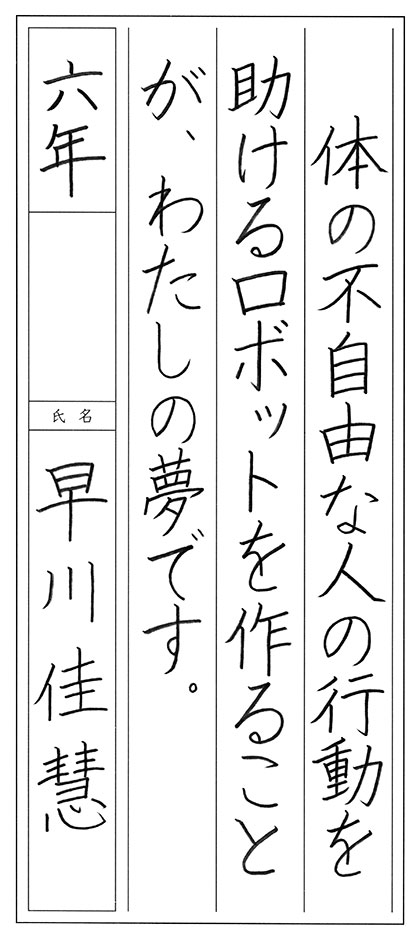 体の不自由な人の行動を
助けるロボットを作ること
が、わたしの夢です。
六年
氏名
早川佳慧